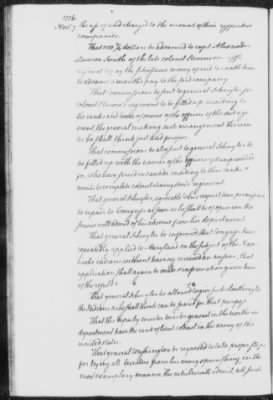 1776
Nov. 7
the use of and charged to the account of their respective
companies.
That 1100 dollars be advanced to capt Alexander
Lawson Smith of the late colonel Stevenson's
regiment by the paymaster to enable him
to advance a months pay to the said company
That commissions be sent to general Schuyler for
colonel Elmore's regiment to be filled up according to
the ranks and of the officers of the said regi
ment the general making such arrangement therein
as he shall think just and proper.
That commissions be also sent to general Schuyler to
be filled up with the names of the officers yet unprovided
for, who have served in canada according to their ranks &
merits to complete colonel Livingston's regiment.
That general Schuyler, agreeable to his request, have permission
to repair to Congress as soon as he shall be of opinion the
service will admit of his absence from his department
That general Schuyler be informed that Congress have
repeatedly applied to Maryland on the subject of the Nan
ticoke indians without having received an answer, that
application shall again be made & information given him
of the result
That general Schuyler be allowed to give such cloathing to
the Indians as he shall think can be spared for that purpose
That the deputy muster master general in the northern
department have the rank of lieut colonel in the army of the
united states.
That general Washington be requested to take proper steps
for trying all deserters from his army & punishing in the
most exemplary manner this will admit, all such